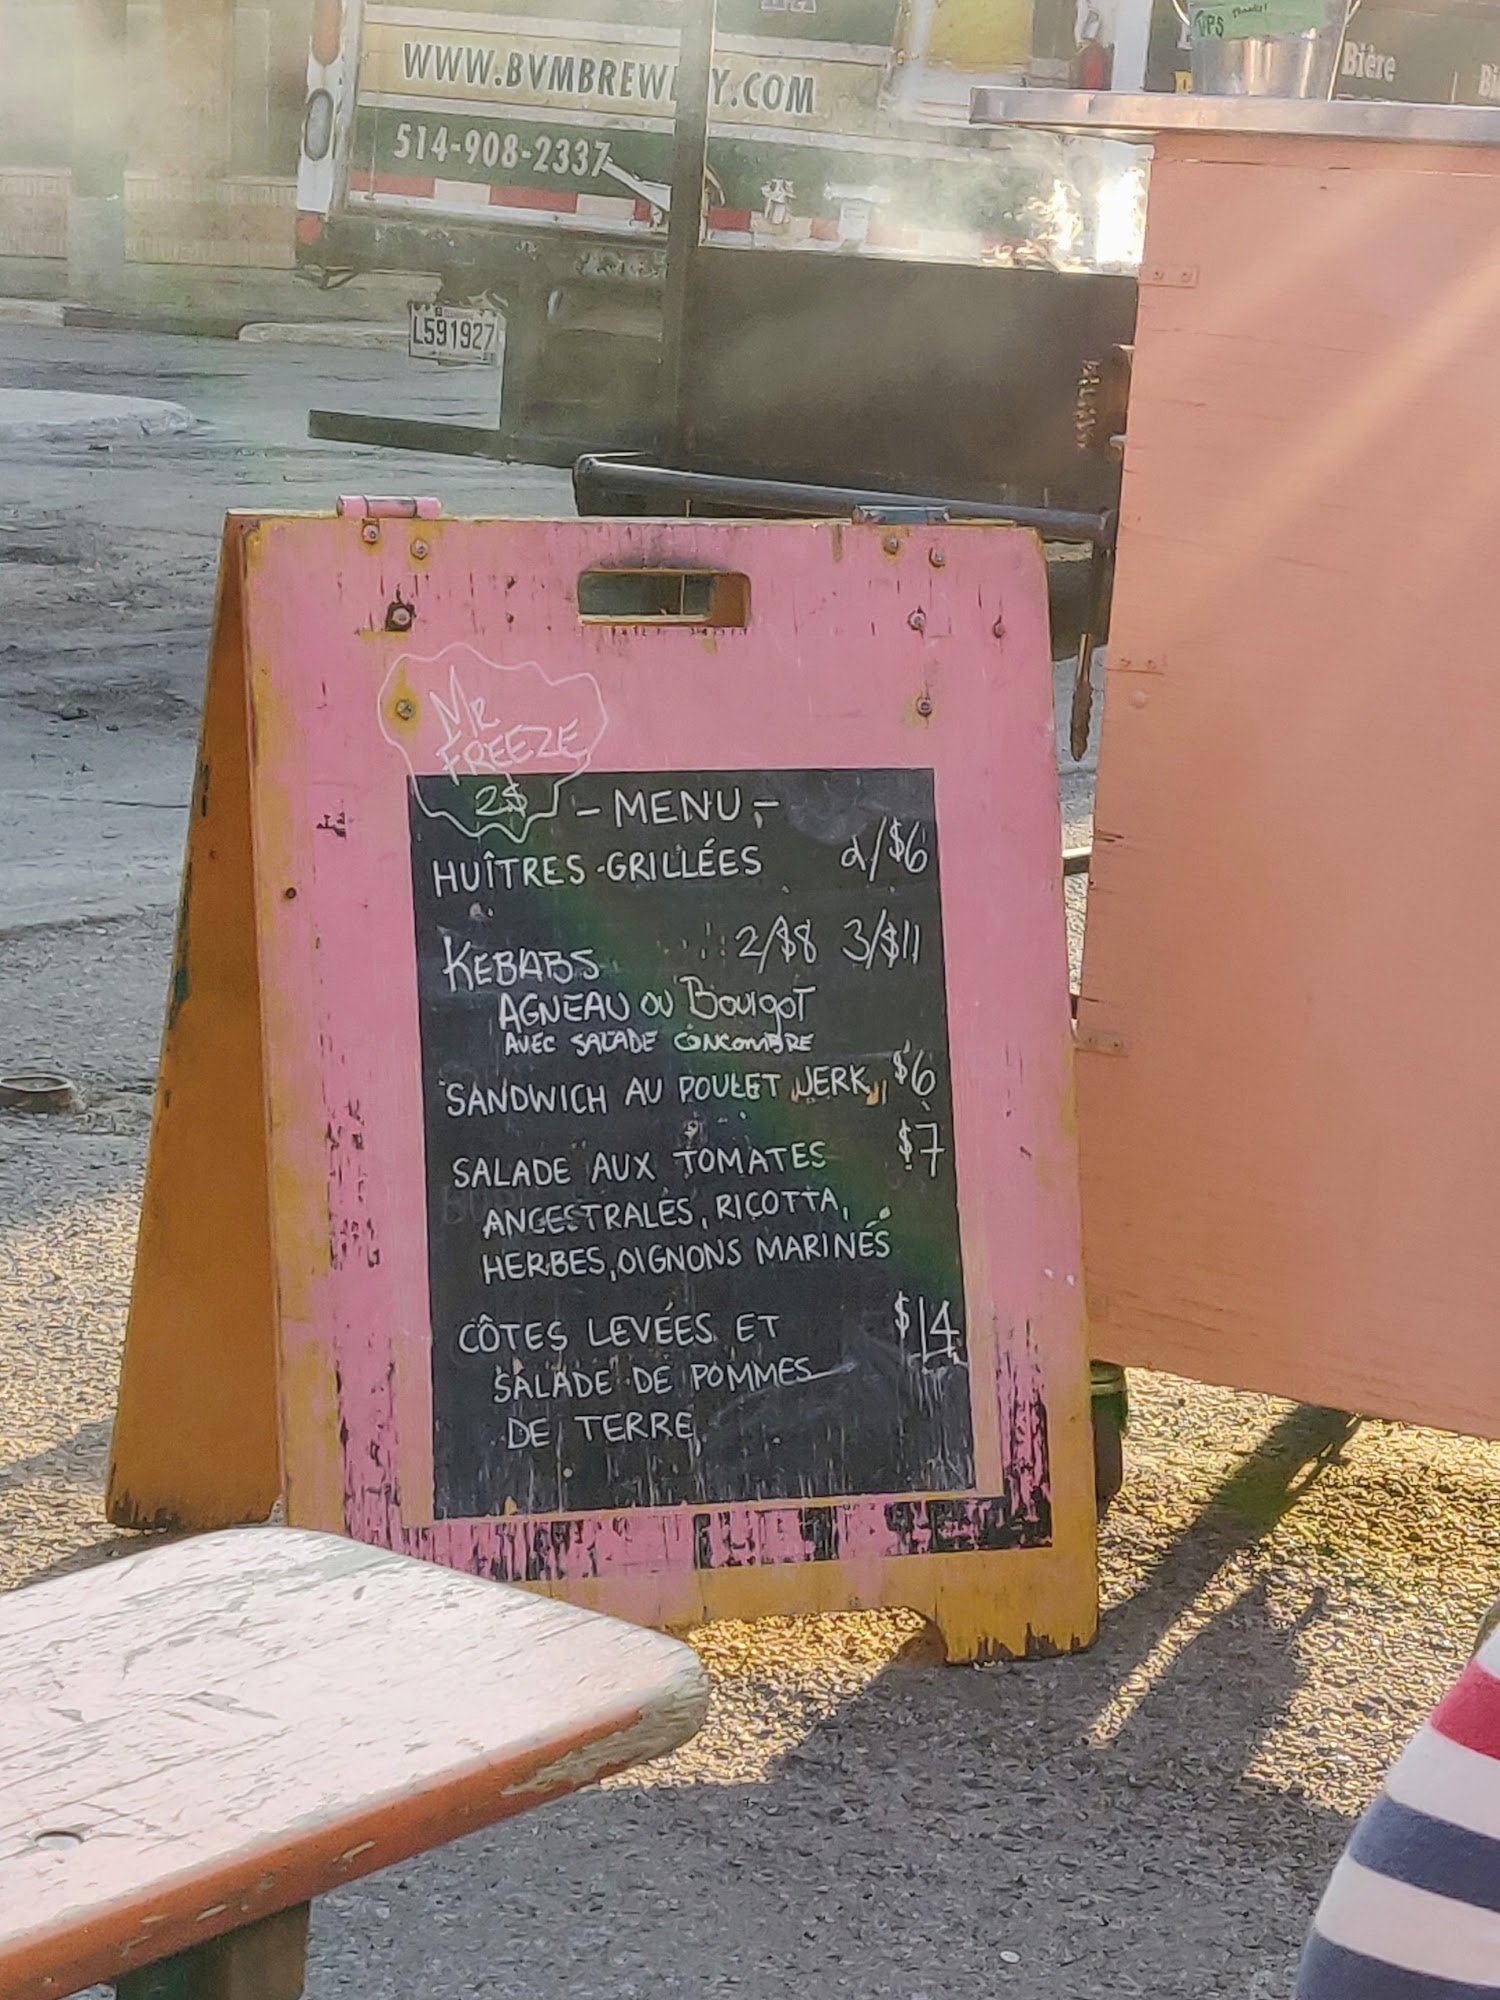 WWW.BVMBREWERY.COM
514-908-2337
UPS Thanks!
Bière
L591927
MR
FREEZE
2$
- MENU -
HUÎTRES GRILLÉES 2/$6
KEBABS 2/$8 3/$11
AGNEAU OU BOURGOT
AVEC SALADE CONCOMBRE
SANDWICH AU POULET JERK $6
SALADE AUX TOMATES $7
ANCESTRALES, RICOTTA,
HERBES, OIGNONS MARINÉS
CÔTES LEVÉES ET $14
SALADE DE POMMES
DE TERRE